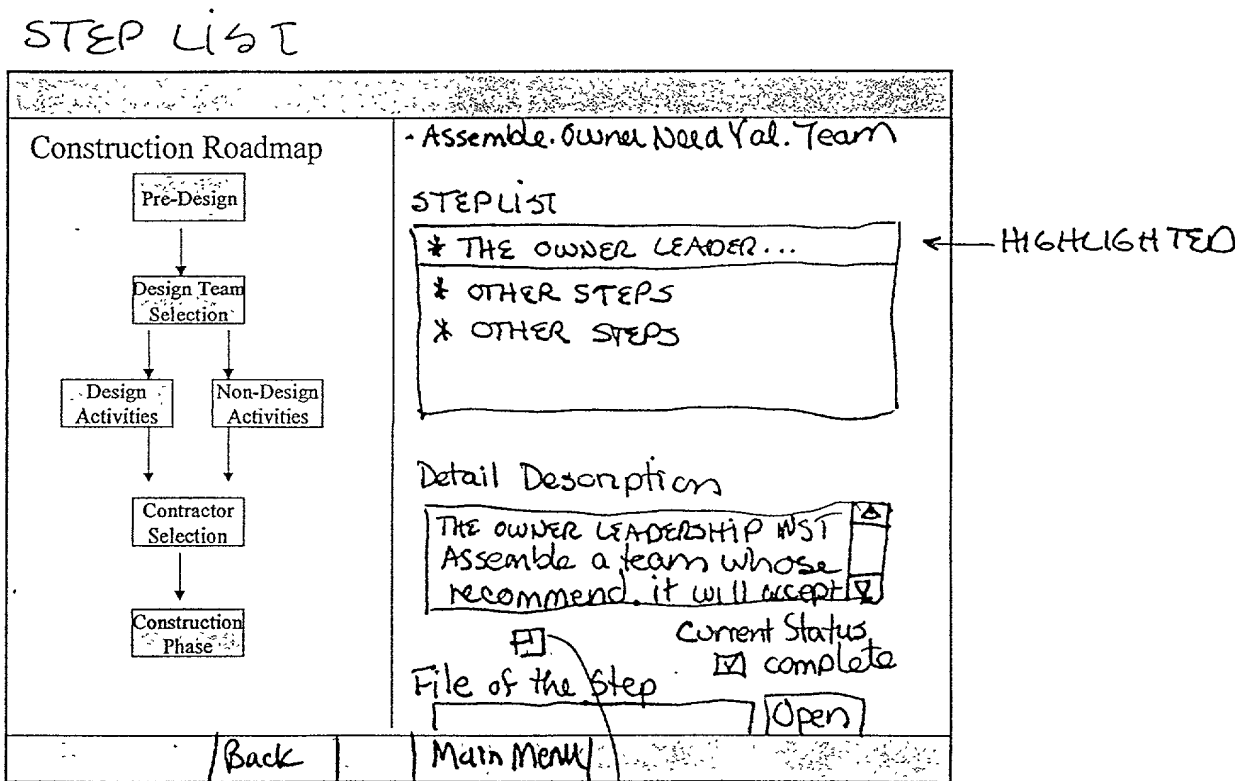 STEP LIST
Construction Roadmap
Pre-Design
Design Team
Selection
Design
Activities
Non-Design
Activities
Contractor
Selection
Construction
Phase
- Assemble. Owner Need Val. Team
STEP LIST
* THE OWNER LEADER...
* OTHER STEPS
* OTHER STEPS
HIGHLIGHTED
Detail Description
THE OWNER LEADERSHIP
Assemble a team whose
recommend. it will accept
Current Status
complete
File of the Step
Open
Back
Main Menu